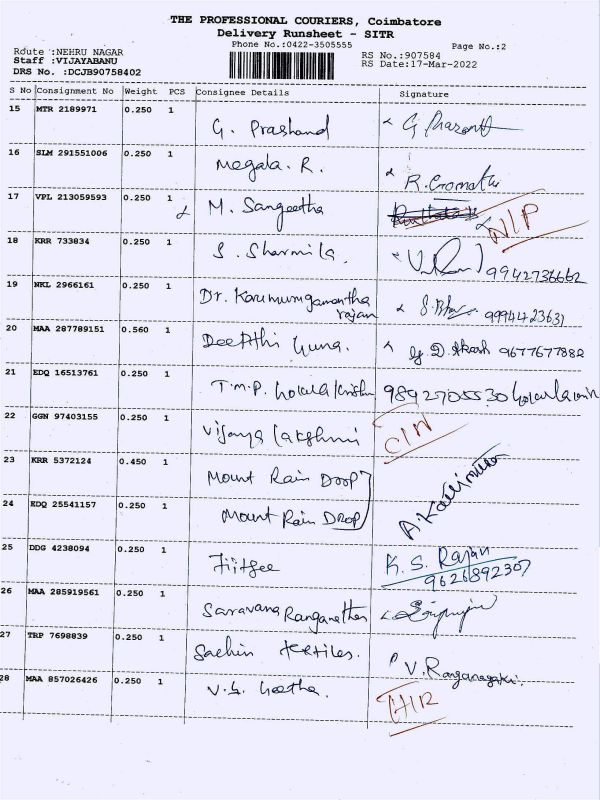 THE PROFESSIONAL COURIERS, Coimbatore
Delivery Runsheet - SITR
Phone No.:0422-3505555 Page No.:2
Route :NEHRU NAGAR RS No.:907584
Staff :VIJAYABANU RS Date:17-Mar-2022
DRS No. :DCJB90758402
S No Consignment No Weight PCS Consignee Details Signature
15 MTR 2189971 0.250 1 G. Prashand G Prasanth
16 SLM 291551006 0.250 1 Megala. R. R.Gomathi
17 VPL 213059593 0.250 1 M. Sangeetha N/P
18 KRR 733834 0.250 1 S. Sharmila. 9942736662
19 NKL 2966161 0.250 1 Dr. 9994423631
rajan
20 MAA 287789151 0.560 1 Deepthi Guna. D. Akash 9677677882
21 EDQ 16513761 0.250 1 T.M.P. 9892705530
22 GGN 97403155 0.250 1 Vijaya Lakshmi
23 KRR 5372124 0.450 1 Mount Rain Drop
24 EDQ 25541157 0.250 1 Mount Rain Drop
25 DDG 4238094 0.250 1 Fiitjee K. S. Rajan
9626892307
26 MAA 285919561 0.250 1 Saravana Ranganathan
27 TRP 7698839 0.250 1 Sachin textiles.
28 MAA 857026426 0.250 1 V.S. Geetha.